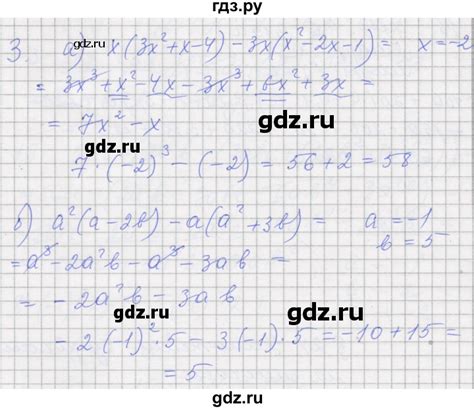 гдз.ру
3. а) x(3x²+x-4)-3x(x²-2x-1)= x=-2
= 3x³+x²-4x-3x³+6x²+3x=
= 7x²-x
gdz.ru
gdz.ru
7·(-2)³-(-2)=56+2=58
б) a²(a-2b)-a(a²+3b)= a=-1
b=5
gdz.ru
=a³-2a²b-a³-3ab=
= -2a²b-3ab
gdz.ru
gdz.ru
-2(-1)²·5-3(-1)·5=-10+15=
=5
gdz.ru